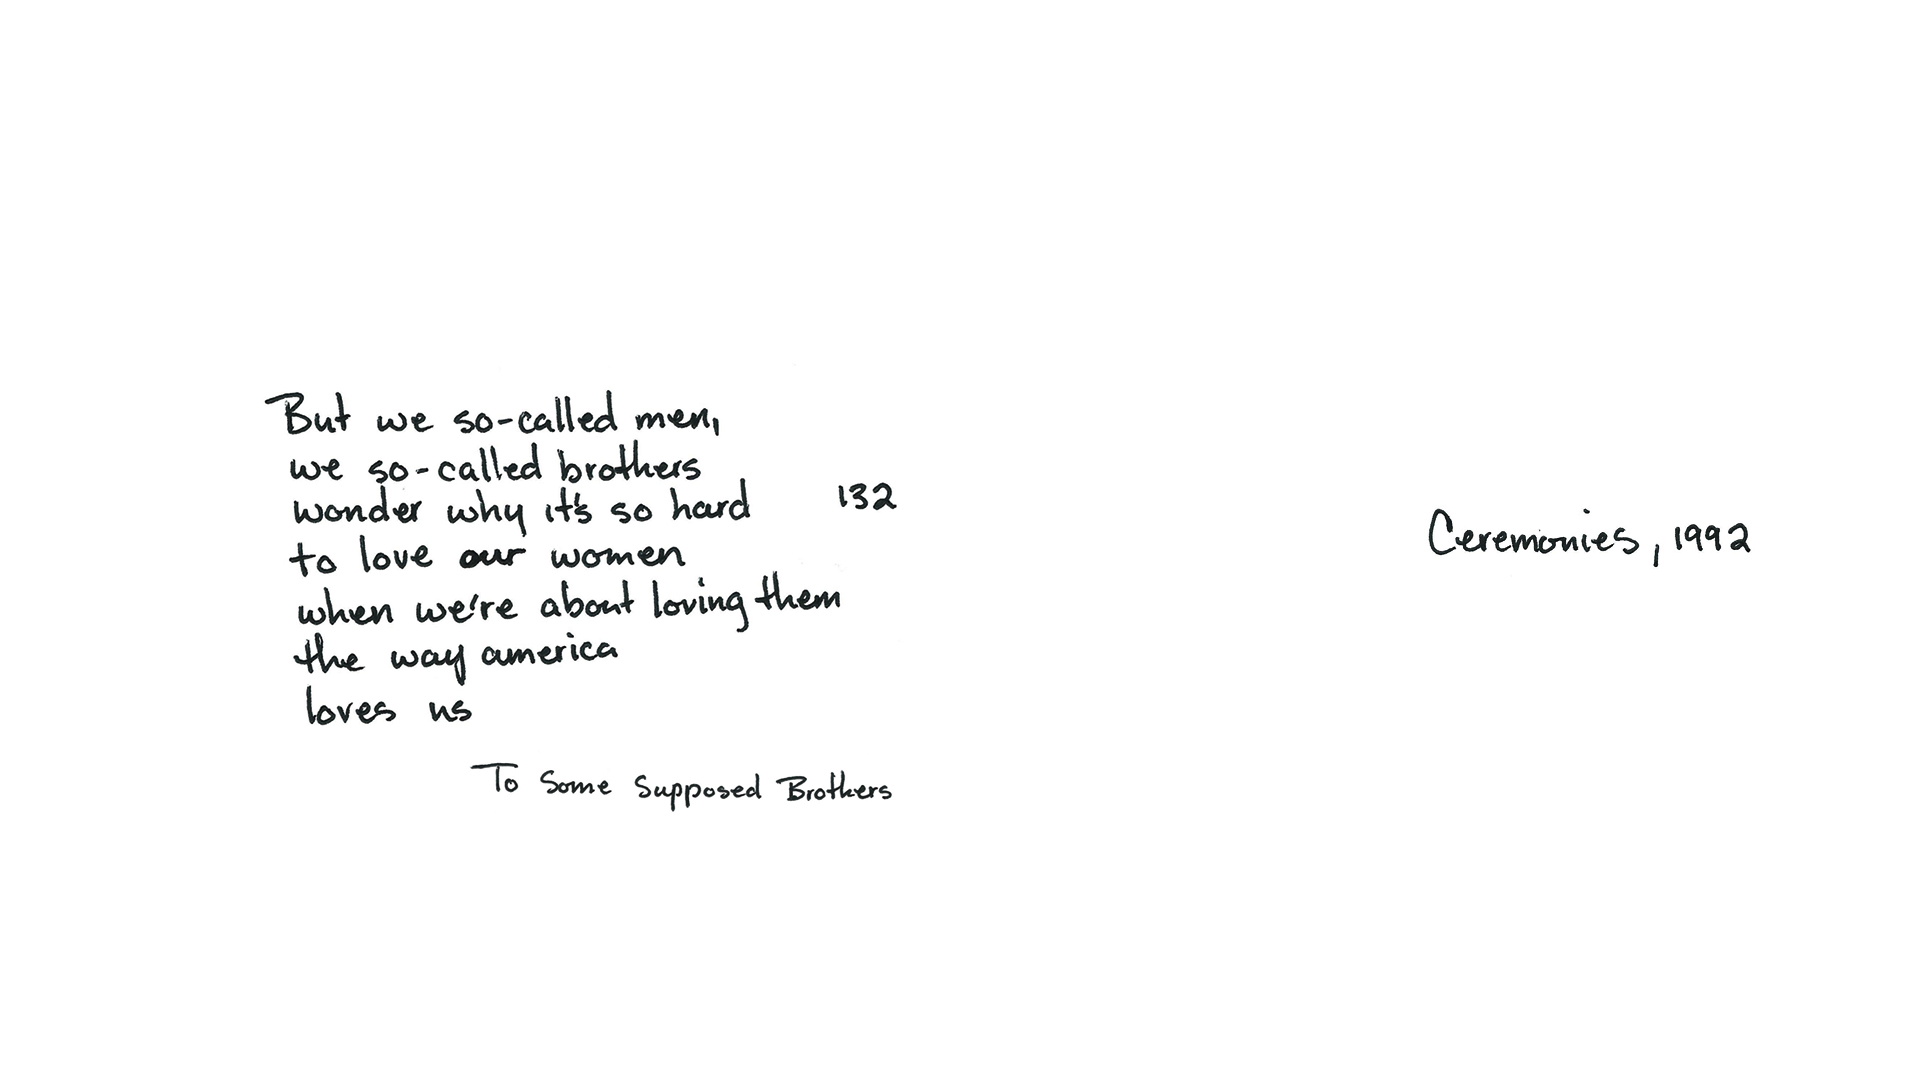 But we so-called men,
we so-called brothers
wonder why it's so hard
132
to love our women
when we're about loving them
the way america
loves us
To Some Supposed Brothers
Ceremonies, 1992